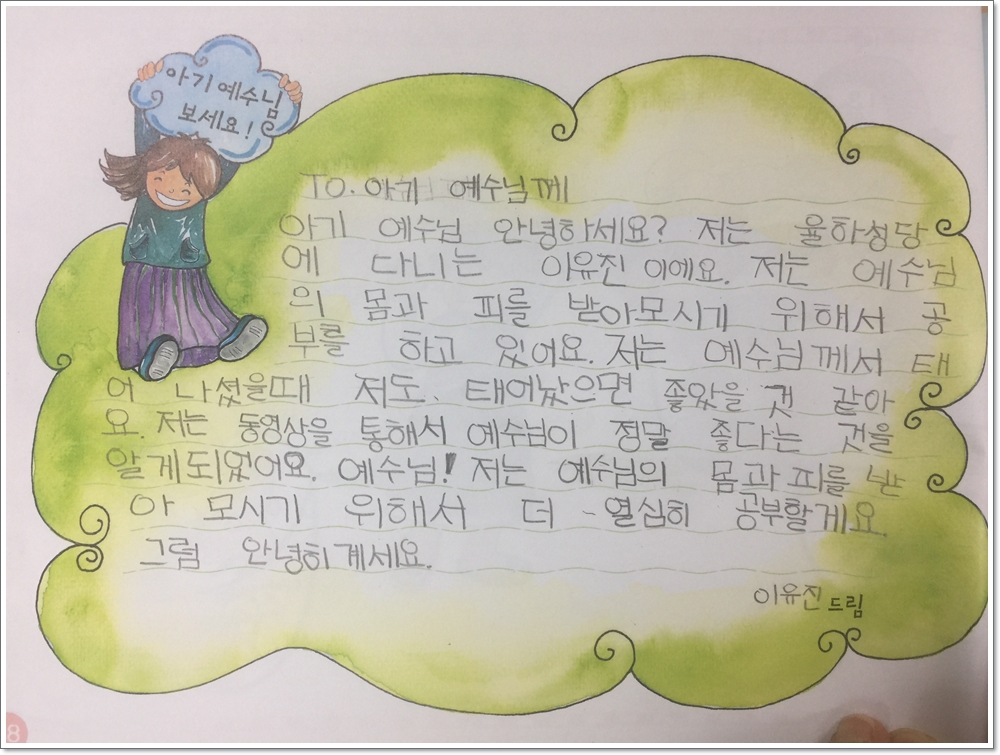 아기 예수님
보세요!
TO. 아기 예수님께
아기 예수님 안녕하세요? 저는 율하성당
에 다니는 이유진 이에요. 저는 예수님
의 몸과 피를 받아모시기 위해서 공
부를 하고 있어요. 저는 예수님께서 태
어 나셨을때 저도. 태어났으면 좋았을 것 같아
요. 저는 동영상을 통해서 예수님이 정말 좋다는 것을
알게되었어요. 예수님! 저는 예수님의 몸과피를 받
아 모시기 위해서 더 열심히 공부할게요.
그럼 안녕히계세요.
이유진 드림
8